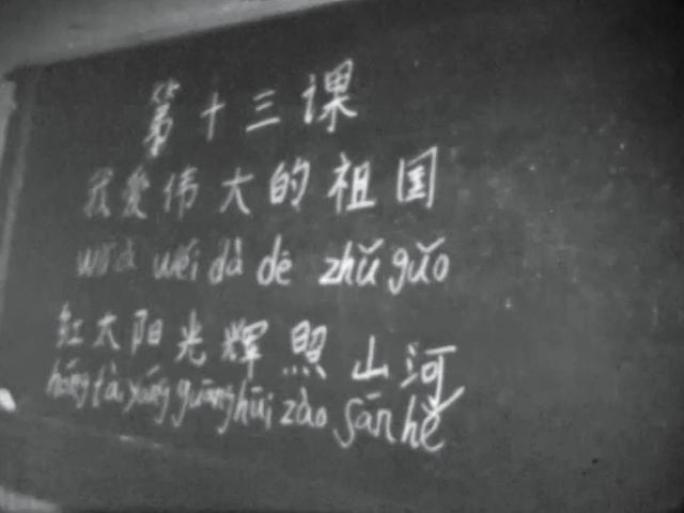 第十三课
我爱伟大的祖国
wǒ à wěi dà dē zhǔ guǒ
红太阳光辉照山河
hóng tà yáng guāng hūi zào sān hě